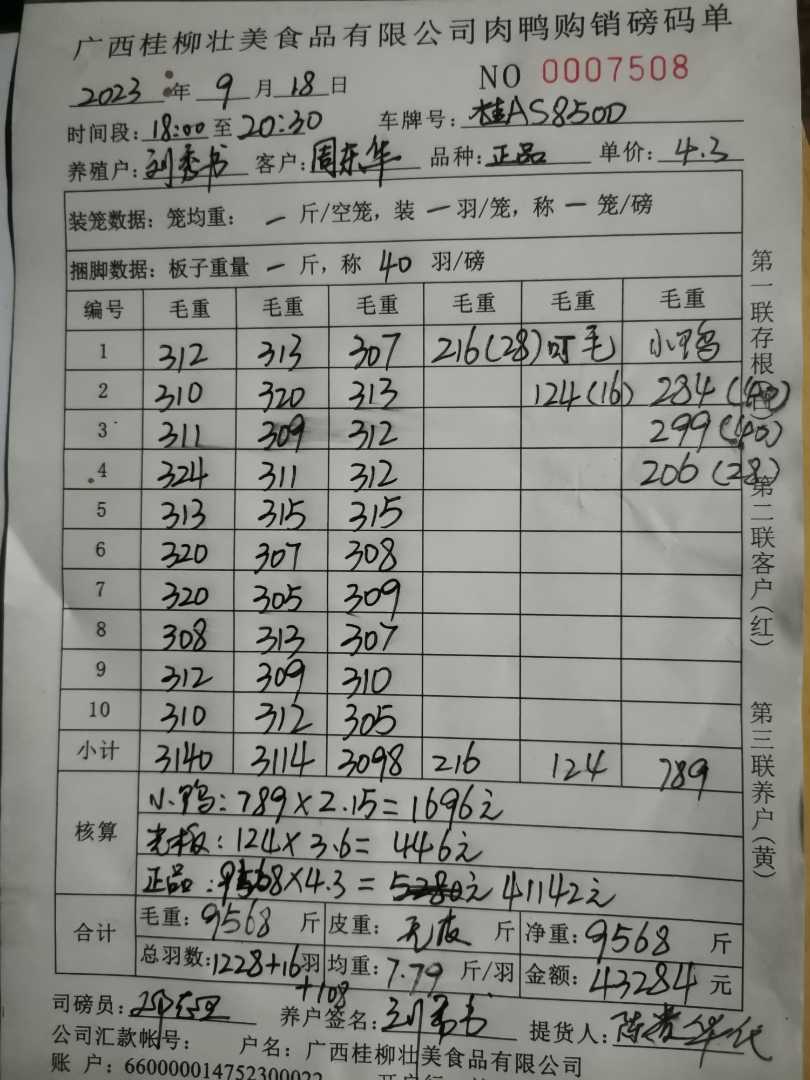 广西桂柳壮美食品有限公司肉鸭购销磅码单
2023年 9月18日 NO 0007508
时间段:18:00至20:30 车牌号:桂AS850D
养殖户:刘秀书 客户:周东华 品种:正品 单价:4.3
装笼数据:笼均重:一斤/空笼,装一羽/笼,称一笼/磅
捆脚数据:板子重量一斤,称40羽/磅
编号 毛重 毛重 毛重 毛重 毛重 毛重
1 312 313 307 216(28) 叮毛 小鸭
2 310 320 313 124(16) 284(40)
3 311 309 312 299(40)
4 324 311 312 206(28)
5 313 315 315
6 320 307 308
7 320 305 309
8 308 313 307
9 312 309 310
10 310 312 305
小计 3140 3114 3098 216 124 789
核算 小鸭:789×2.15=1696元
光板:124×3.6=446元
正品:9568×4.3=5280元 41142元
合计 毛重:9568斤 皮重:无皮斤 净重:9568斤
总羽数:1228+16羽 均重:7.79斤/羽 金额:43284元
+108
司磅员: 养户签名:刘秀书 提货人:
公司汇款帐号: 户名:广西桂柳壮美食品有限公司
账 户:660000014752300022 开户行
第一联存根
第二联客户(红)
第三联养户(黄)